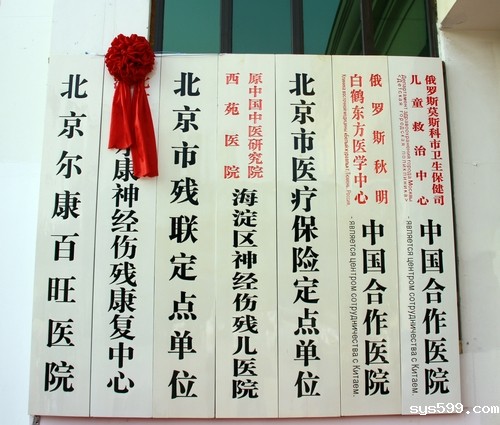 北京尔康百旺医院
康神经伤残康复中心
北京市残联定点单位
原中国中医研究院
西苑医院
海淀区神经伤残儿医院
北京市医疗保险定点单位
俄罗斯秋明
白鹤东方医学中心
中国合作医院
- является центром сотрудничества с Китаем.
俄罗斯莫斯科市卫生保健司
儿童救治中心
Департамент здравоохранения города Москвы
«Детская городская поликлиника»
中国合作医院
- является центром сотрудничества с Китаем.
sys599.com